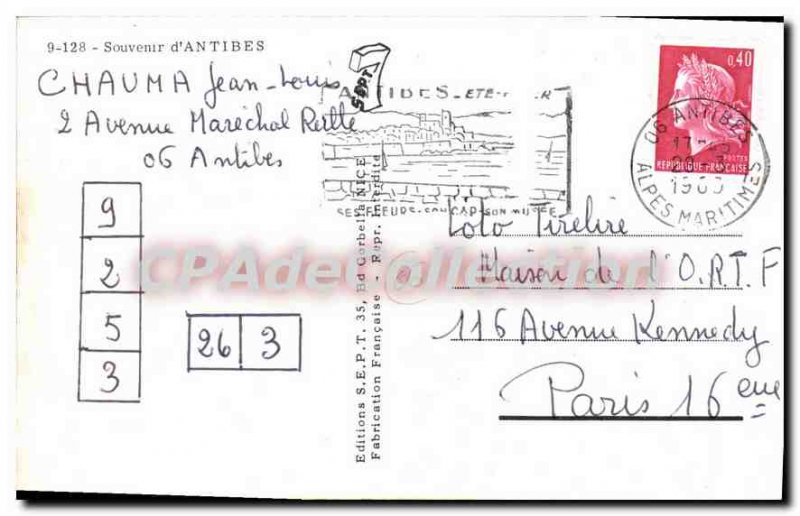 9-128 - Souvenir d'ANTIBES
CHAUMA Jean-Louis
2 Avenue Maréchal
06 Antibes
9
2
5
3
26 3
SEPT
ANTIBES
SON CAP
Editions S.E.P.T. 35, Bd Gorbella NICE
Fabrication Française - Repr. Interdite
0,40
POSTES
REPUBLIQUE FRANÇAISE
06 ANTIBES
ALPES MARITIMES
Toto Tirelire
Maison de l'O.R.T.F
116 Avenue Kennedy
Paris 16eme
CPAdeCollection